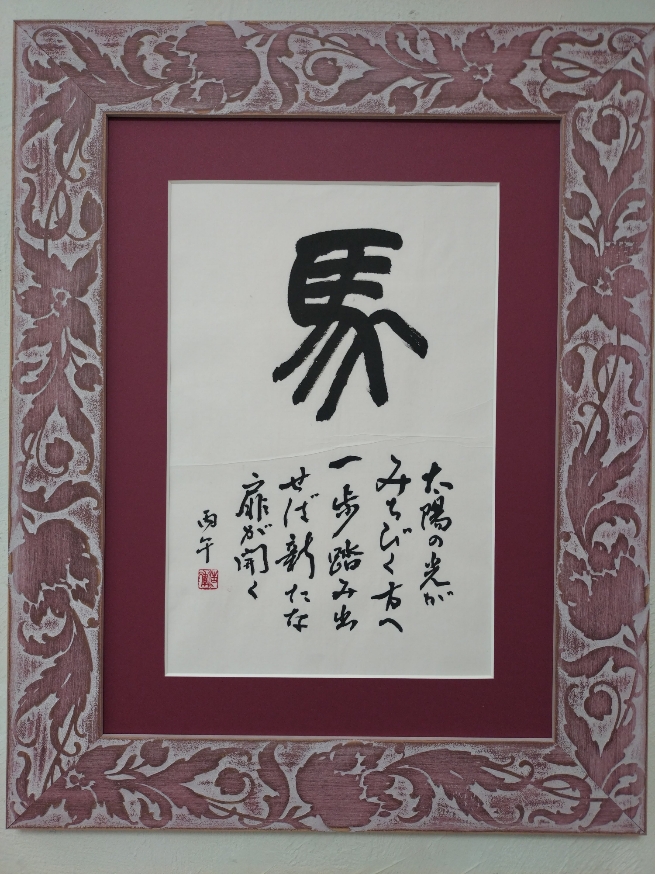 馬
太陽の光が
みちびく方へ
一歩踏み出
せば新たな
扉が開く
丙午